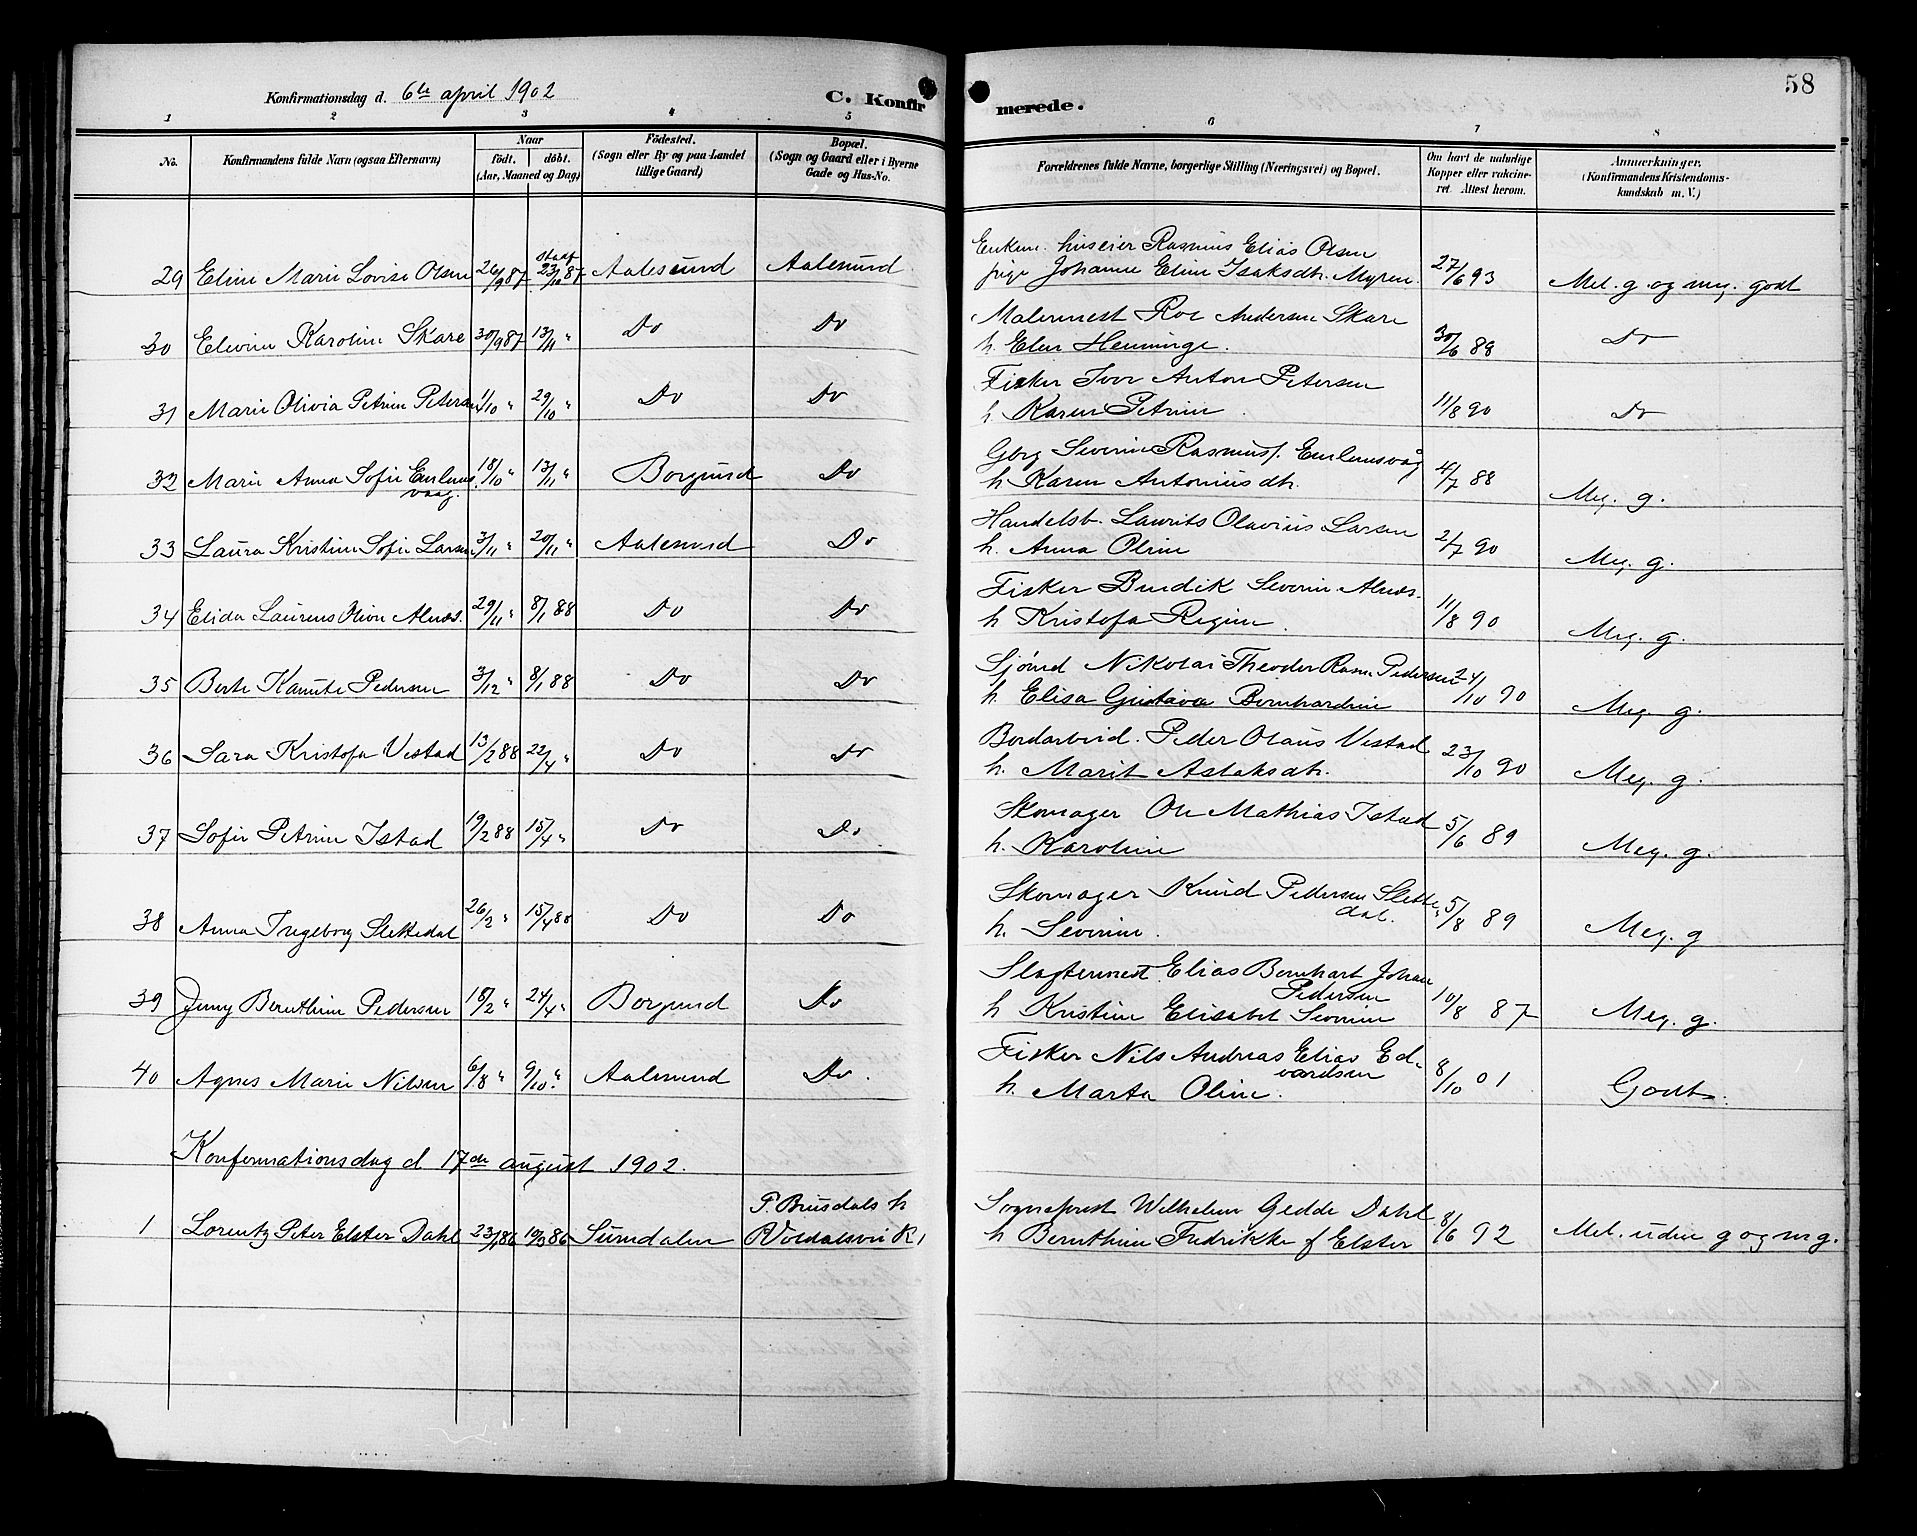 58
Konfirmationsdag d. 6te april 1902 C. Konfirmerede.
1 2 3 4 5 6 7 8
No. Konfirmandens fulde Navn (ogsaa Efternavn) Naar født. døbt. (Aar, Maaned og Dag) Fødested. (Sogn eller By og paa Landet tillige Gaard) Bopæl. (Sogn og Gaard eller i Byerne Gade og Hus-No. Forældrenes fulde Navne, borgerlige Stilling (Næringsvei) og Bopæl. Om havt de naturlige Kopper eller vakcineret. Attest herom. Anmærkninger. (Konfirmandens Kristendomskundskab m. V.)
29 Eline Marie Lovise Olsen 26/9 87 23/10 87 Aalesund Aalesund huseier Rasmus Elias Olsen
pige Johanne Eline Isaksdtr. Myren. 27/6 93 Mel. g. og meg. godt
30 Elevine Karoline Skare 30/9 87 13/11 " Do Do Malermest Roe Andersen Skare
h. Elen Henninge. 30/6 88 Do
31 Marie Olivia Petrine Petersen 1/10 " 29/10 " Do Do Fisker Iver Anton Petersen
h Karen Petrine 11/8 90 Do
32 Marie Anna Sofie Emlemsvaag. 18/10 " 13/11 " Borgund Do Gbrg Severin Rasmuss. Emlemsvåg
h Karen Antoniusdtr. 4/7 88 Meg. g.
33 Laura Kristine Sofie Larsen 3/11 " 20/11 " Aalesund Do Handelsb. Laurits Olavius Larsen
h. Anna Oline 2/7 90 Meg. g.
34 Elida Laurens Olive Alnes. 29/11 " 8/1 88 Do Do Fisker Bendik Severin Alnes.
h Kristofa Regine. 11/8 90 Meg. g.
35 Berte Kanute Pedersen 3/12 " 8/1 88 Do Do Sjømd Nikolai Theodor Rasm. Pedersen
h. Elisa Gustava Bernhardine 24/10 90 Meg. g.
36 Sara Kristofa Vestad 13/2 88 22/4 " Do Do Bordarbeid. Peder Olaus Vestad
h. Marit Aslaksdtr. 23/10 90 Meg. g.
37 Sofie Petrine Istad 19/2 88 15/4 " Do Do Skomager Ole Mathias Istad
h. Karoline 5/6 89 Meg. g.
38 Anna Ingeborg Slettedal 26/2 " 15/4 88 Do Do Skomager Knud Pedersen Slettedal.
h. Severine. 5/8 89 Meg. g
39 Jenny Bernthine Pedersen 18/2 " 24/4 " Borgund Do Slagtermest. Elias Bernhart Johan
Pedersen
h Kristine Elisabet Severine 10/8 87 Meg. g.
40 Agnes Marie Nilsen 6/8 " 9/10 " Aalesund Do. Fisker Nils Andreas Elias Edvardsen
h. Marta Oline. 8/10 01 Godt.
Konfirmationsdag d 17de august 1902.
1 Lorentz Peter Elster Dahl 23/1 86 19/3 86 Sundalen P. Brusdals h
Sogneprest Wilhelm Gedde Dahl
h Bernthine Fredrikke f Elster 8/6 92 Mel. uden g og mg.